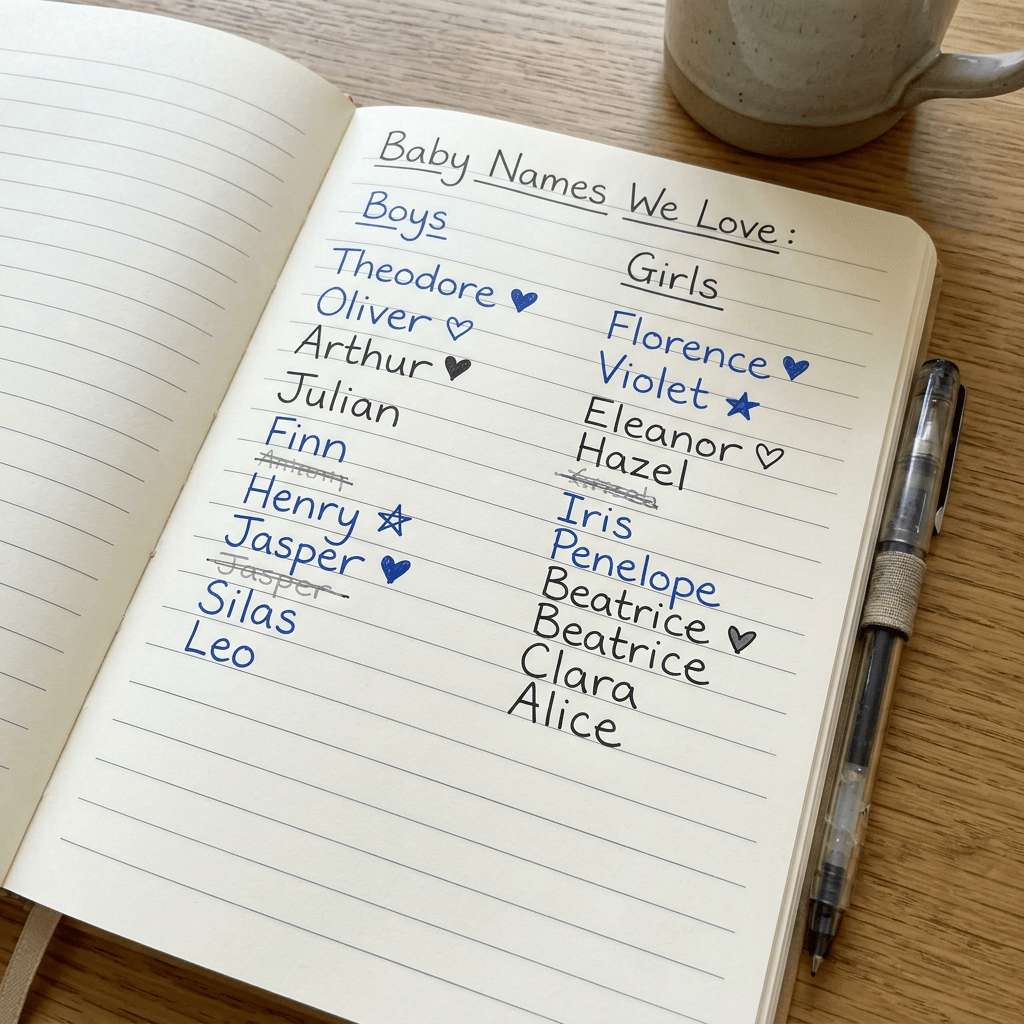 Baby Names We Love:
Boys
Theodore ♥
Oliver ♡
Arthur ♥
Julian
Finn
Henry ☆
Jasper ♥
Jasper
Silas
Leo
Girls
Florence ♥
Violet ★
Eleanor ♡
Hazel
Iris
Penelope
Beatrice ♥
Beatrice
Clara
Alice